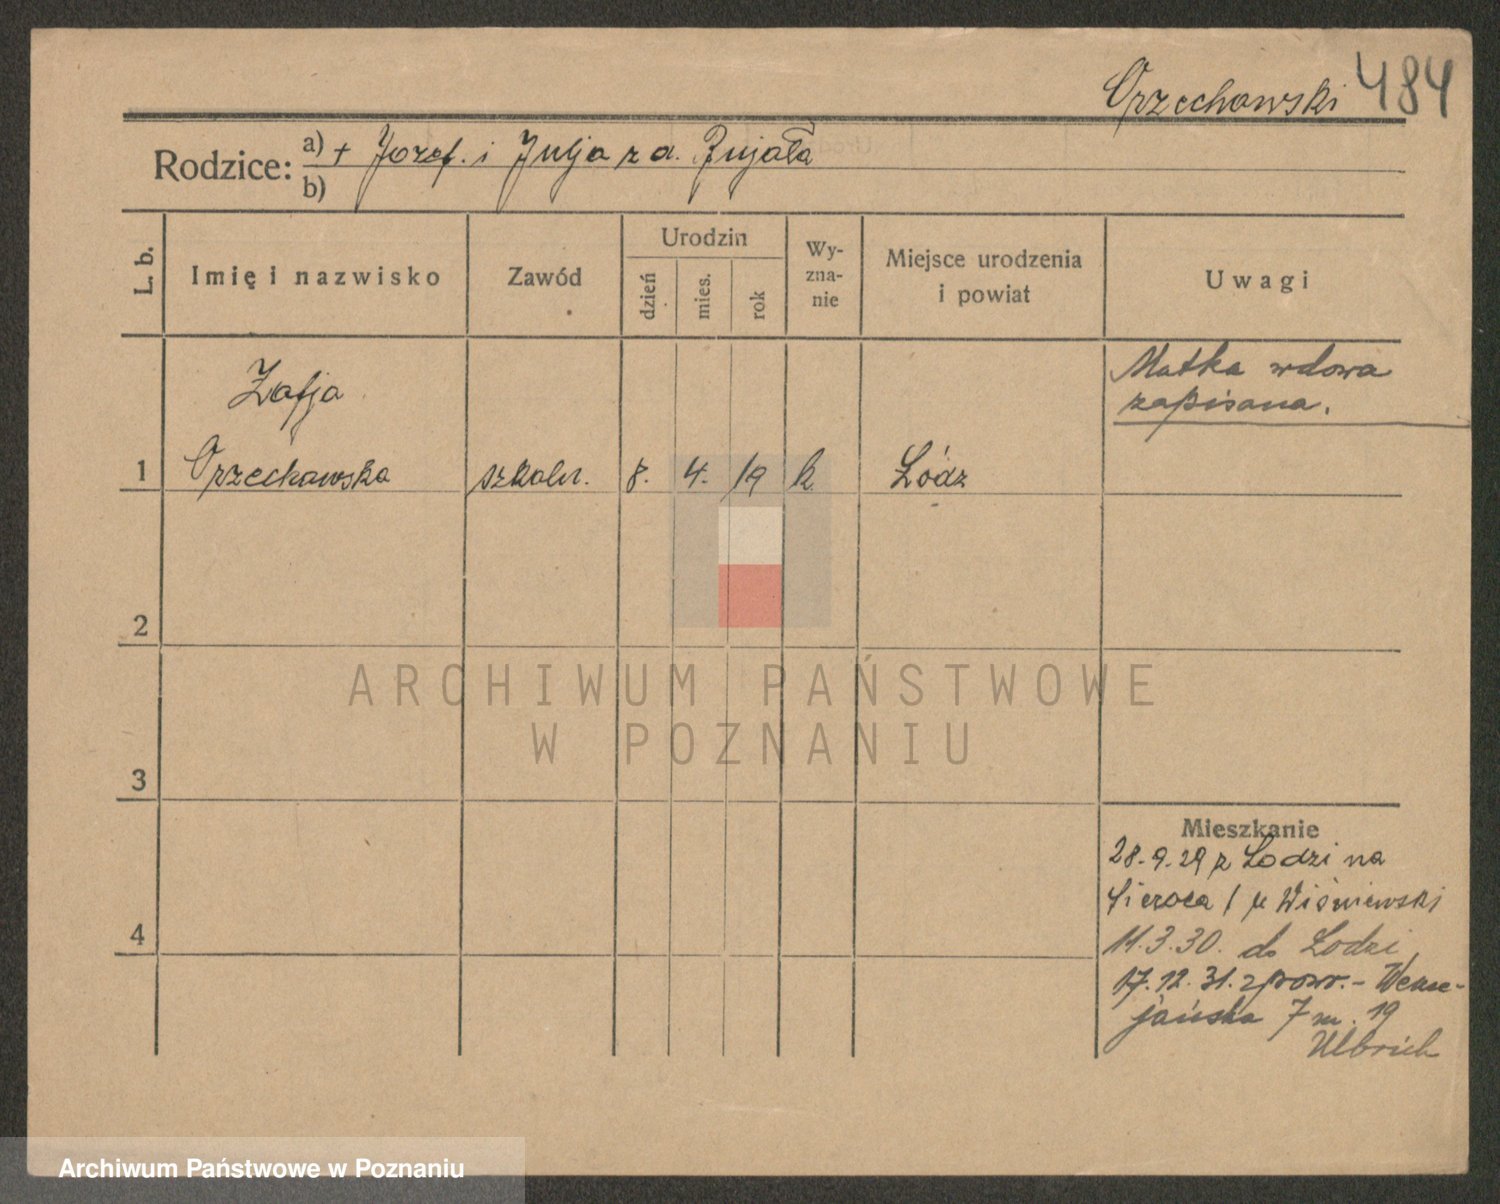 Orzechowski 484
Rodzice: a) + Józef. i Julja z d. Bujała
b)
L. b. Imię i nazwisko Zawód Urodzin dzień mies. rok Wy-zna-nie Miejsce urodzenia i powiat Uwagi
Matka wdowa
zapisana.
Zofja
1 Orzechowska szkoln. 8. 4. 19 k Łódź
2
3
4
Mieszkanie
28.9.29 z Łodzi na
Sieroca / u Wiśniewski
11.3.30. do Łodzi
17.12.31. z powr. - Wene-
jańska 7 m. 19
Ulbrich
ARCHIWUM PAŃSTWOWE
W POZNANIU
Archiwum Państwowe w Poznaniu